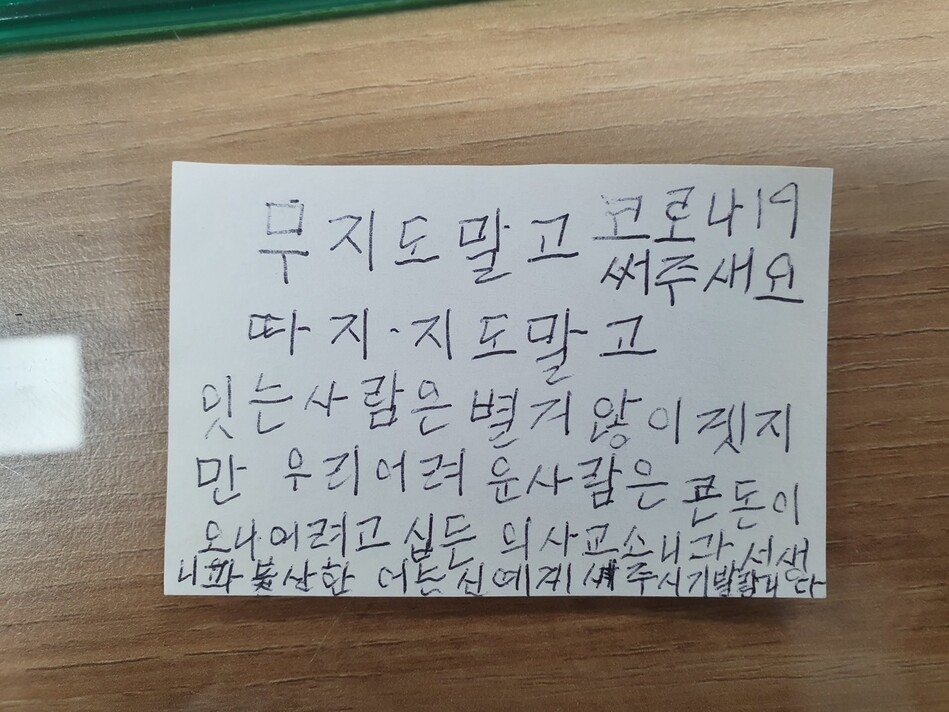 무지도말고 코로나19
써주새요
따지·지도말고
잇는사람은 별거 않이 젯지
만 우리어려 운사람은 큰돈이
오나 어려고 십든 의사교소니과 서생
니과 불산한 어는신에게 주시기발람니다